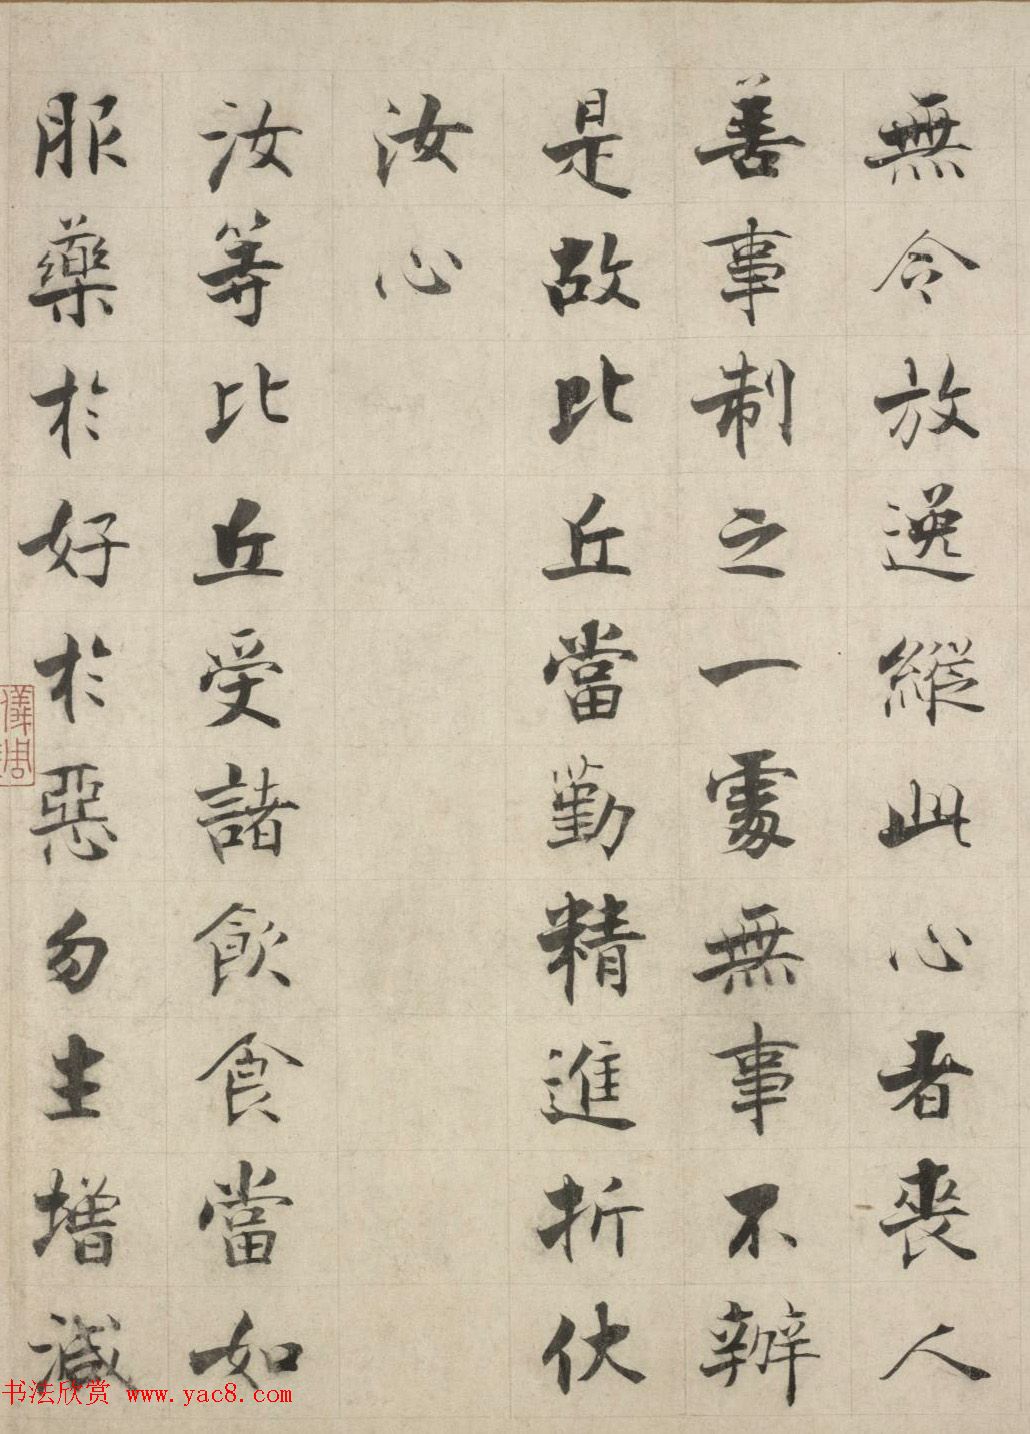 無令放逸縱此心者喪人
善事制之一處無事不辦
是故比丘當勤精進折伏
汝心
汝等比丘受諸飲食當如
服藥於好於惡勿生增減
书法欣赏 www.yac8.com